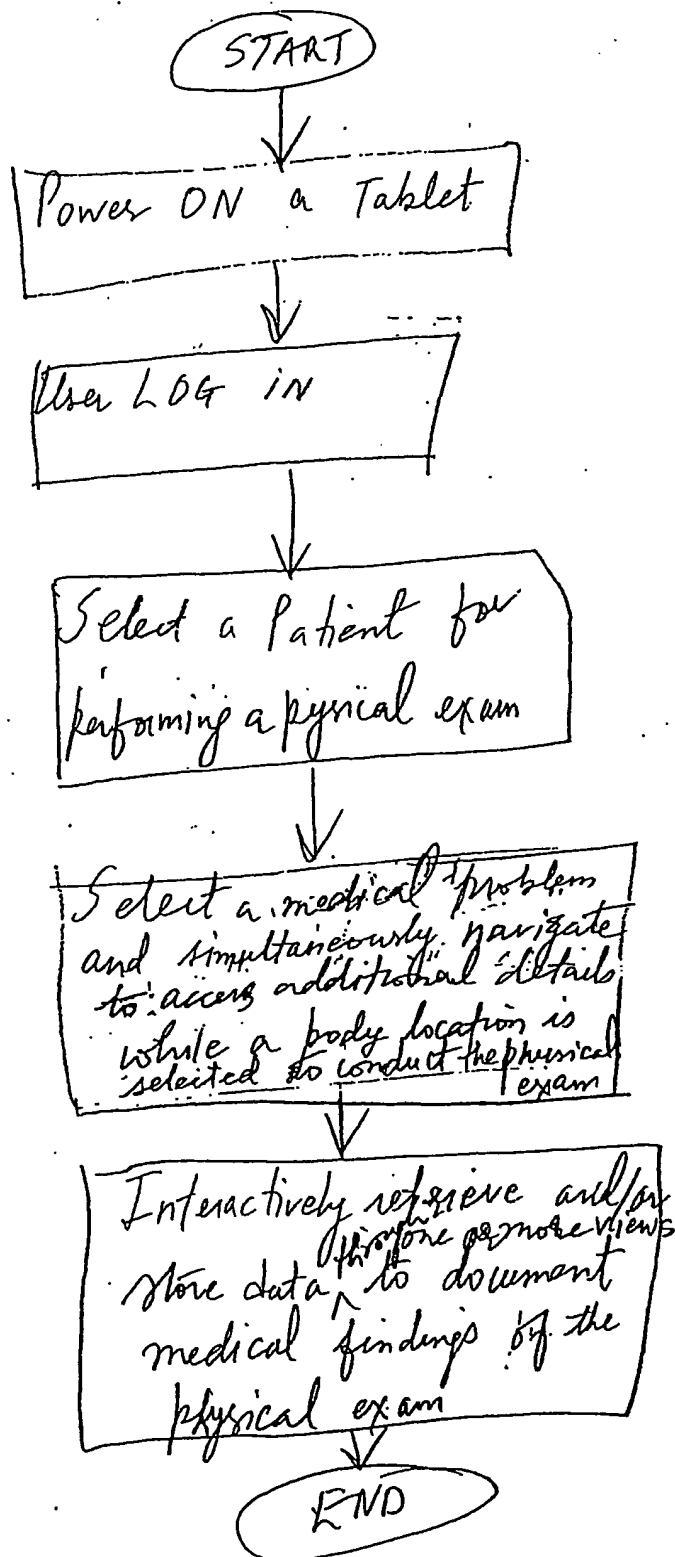 START
Power ON a Tablet
User LOG iN
Select a Patient for
performing a pysical exam
Select a medical problem
and simultaneously navigate
to access additional details
while a body location is
selected to conduct the physical
exam
Interactively retrieve and/or
through one or more views
store data ^ to document
medical findings of the
physical exam
END